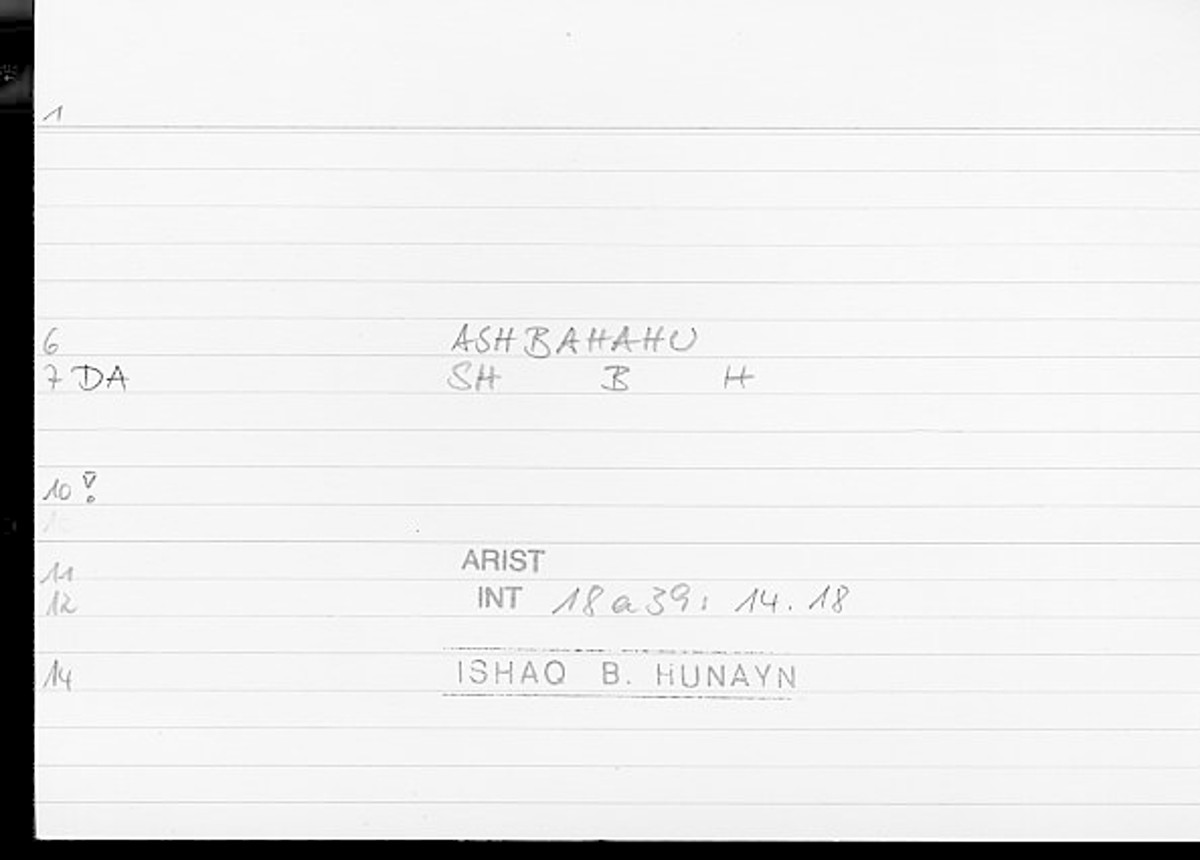 1
6 ASHBAHAHU
7 DA SH B H
10 !
11 ARIST
12 INT 18a39: 14.18
14 ISHAQ B. HUNAYN